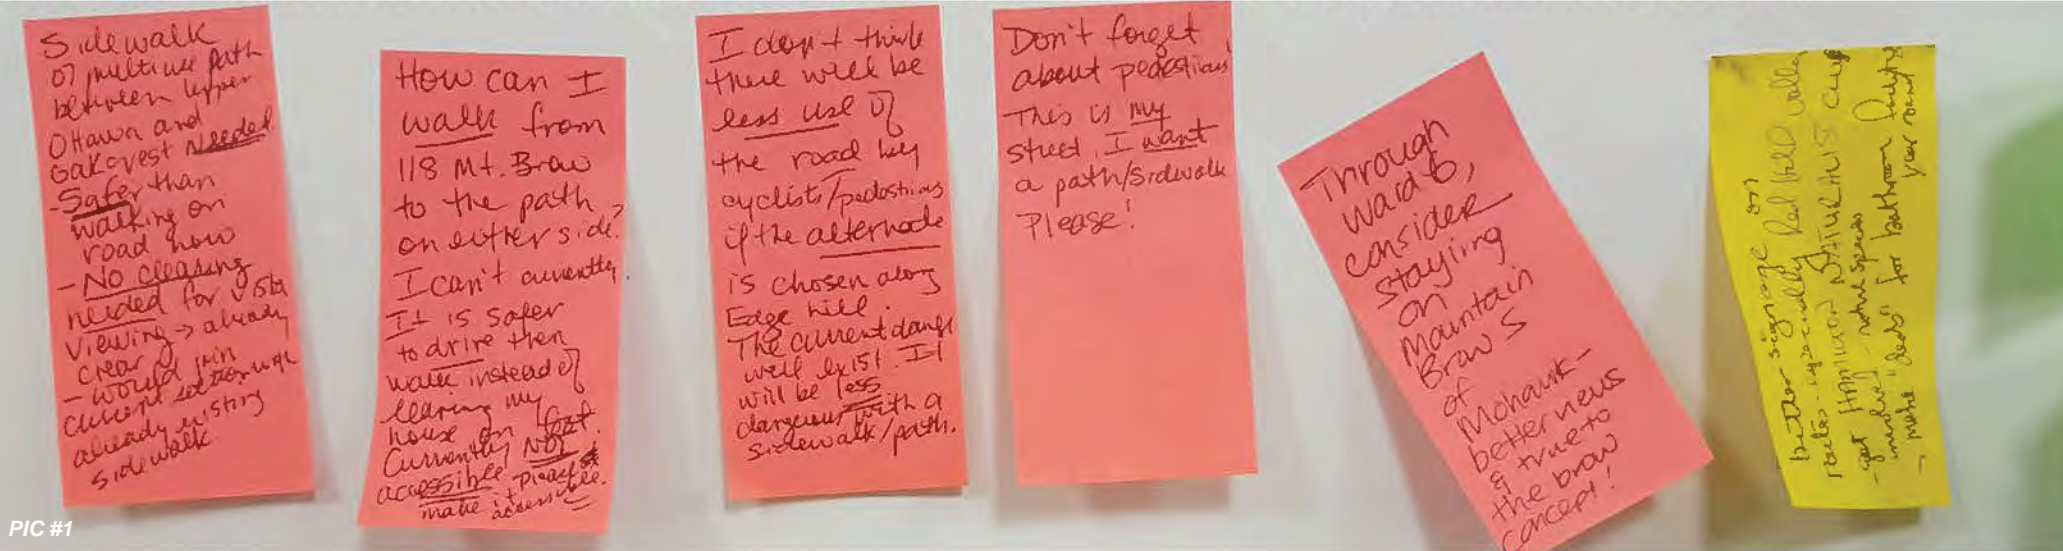 Sidewalk
or multiuse path
between Upper
Ottawa and
Oakcrest Needed
- Safer than
walking on
road now
- No clearing
needed for vista
viewing → already
clear
- would join
current section with
already existing
sidewalk.
How can I
walk from
118 Mt. Brow
to the path
on either side?
I can't currently.
It is safer
to drive then
walk instead of
leaving my
house on foot.
Currently NOT
accessible
make it
accessible.
I don't think
there will be
less use of
the road by
cyclists/pedestrians
if the alternate
is chosen along
Edge hill.
The current danger
will exist. It
will be less
dangerous with a
sidewalk/path.
Don't forget
about pedestrians
This is my
street. I want
a path/sidewalk
Please!
Through
ward 6,
consider
staying
on
Mountain
Brow S
of
Mohawk -
better views
& true to
the brow
concept!
better signage on
routes - especially Red Hill Valley
- get HAMILTON NATURALIS CLUB
- native species
- make for bathroom
year round
PIC #1